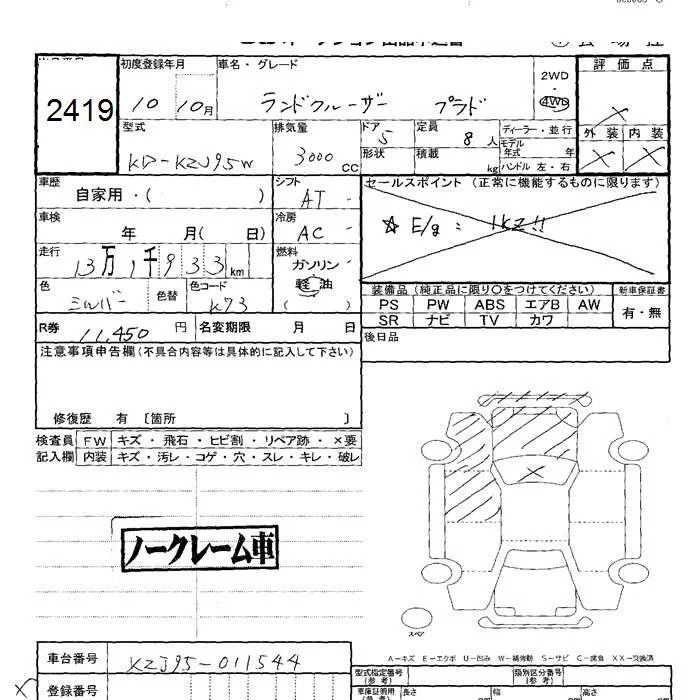 初度登録年月 車名・グレード 2WD 4WD 評価点
2419
10 10月 ランドクルーザー プラド
型式 排気量 ドア 定員 ディーラー・並行 外装 内装
KD-KZJ95W 3000 CC 5 8人 モデル年式 年
形状 積載 kg ハンドル 左・右
車歴 シフト セールスポイント (正常に機能するものに限ります)
自家用・( ) AT
車検 冷房 ☆ E/g : 1KZ!!
年 月( 日) AC
走行 燃料
13万1千933km ガソリン
軽油
( )
色 色替 色コード 装備品 (純正品に限り○をつけてください) 新車保証書
シルバー K73 PS PW ABS エアB AW 有・無
SR ナビ TV カワ
R券 11,450 円 名変期限 月 日 後日品
注意事項申告欄(不具合内容等は具体的に記入して下さい)
修復歴 有 〔箇所 〕
検査員 FW キズ・飛石・ヒビ割・リペア跡・×要
記入欄 内装 キズ・汚レ・コゲ・穴・スレ・キレ・破レ
ノークレーム車
スペア
A-キズ E-エクボ U-凹み W-補修跡 S-サビ C-腐食 XX-交換済
車台番号 KZJ95-011544
型式指定番号 (参考) 類別区分番号 (参考)
登録番号
長さ 幅 高さ